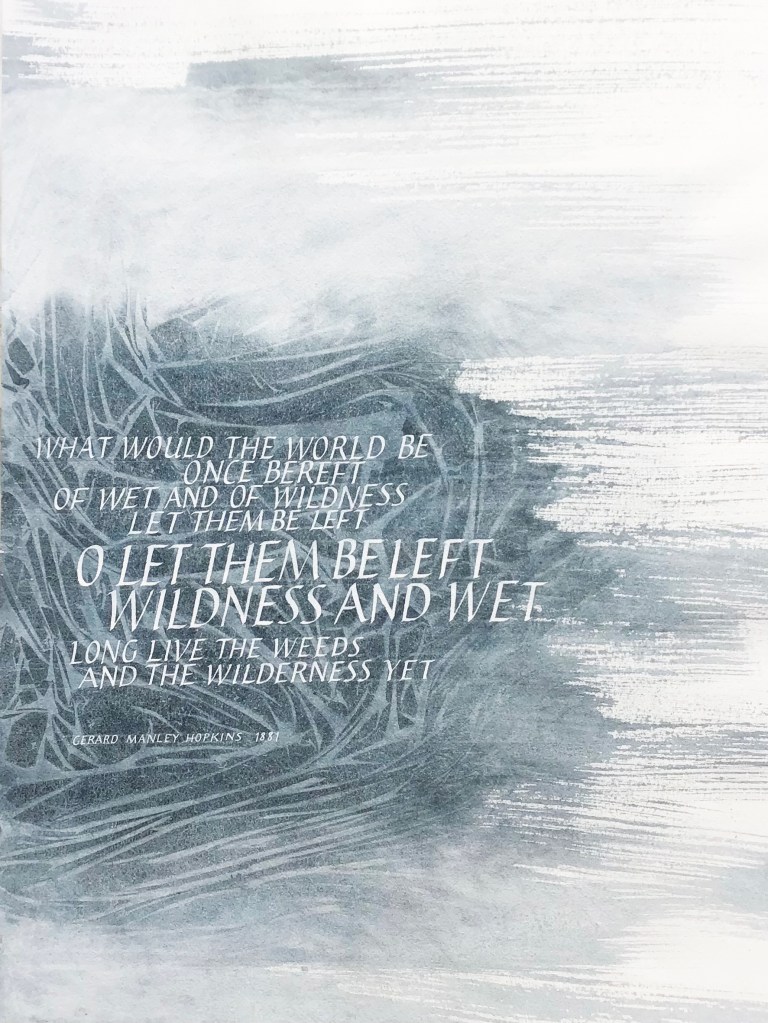 WHAT WOULD THE WORLD BE
ONCE BEREFT
OF WET AND OF WILDNESS
LET THEM BE LEFT
O LET THEM BE LEFT
WILDNESS AND WET
LONG LIVE THE WEEDS
AND THE WILDERNESS YET
GERARD MANLEY HOPKINS 1881